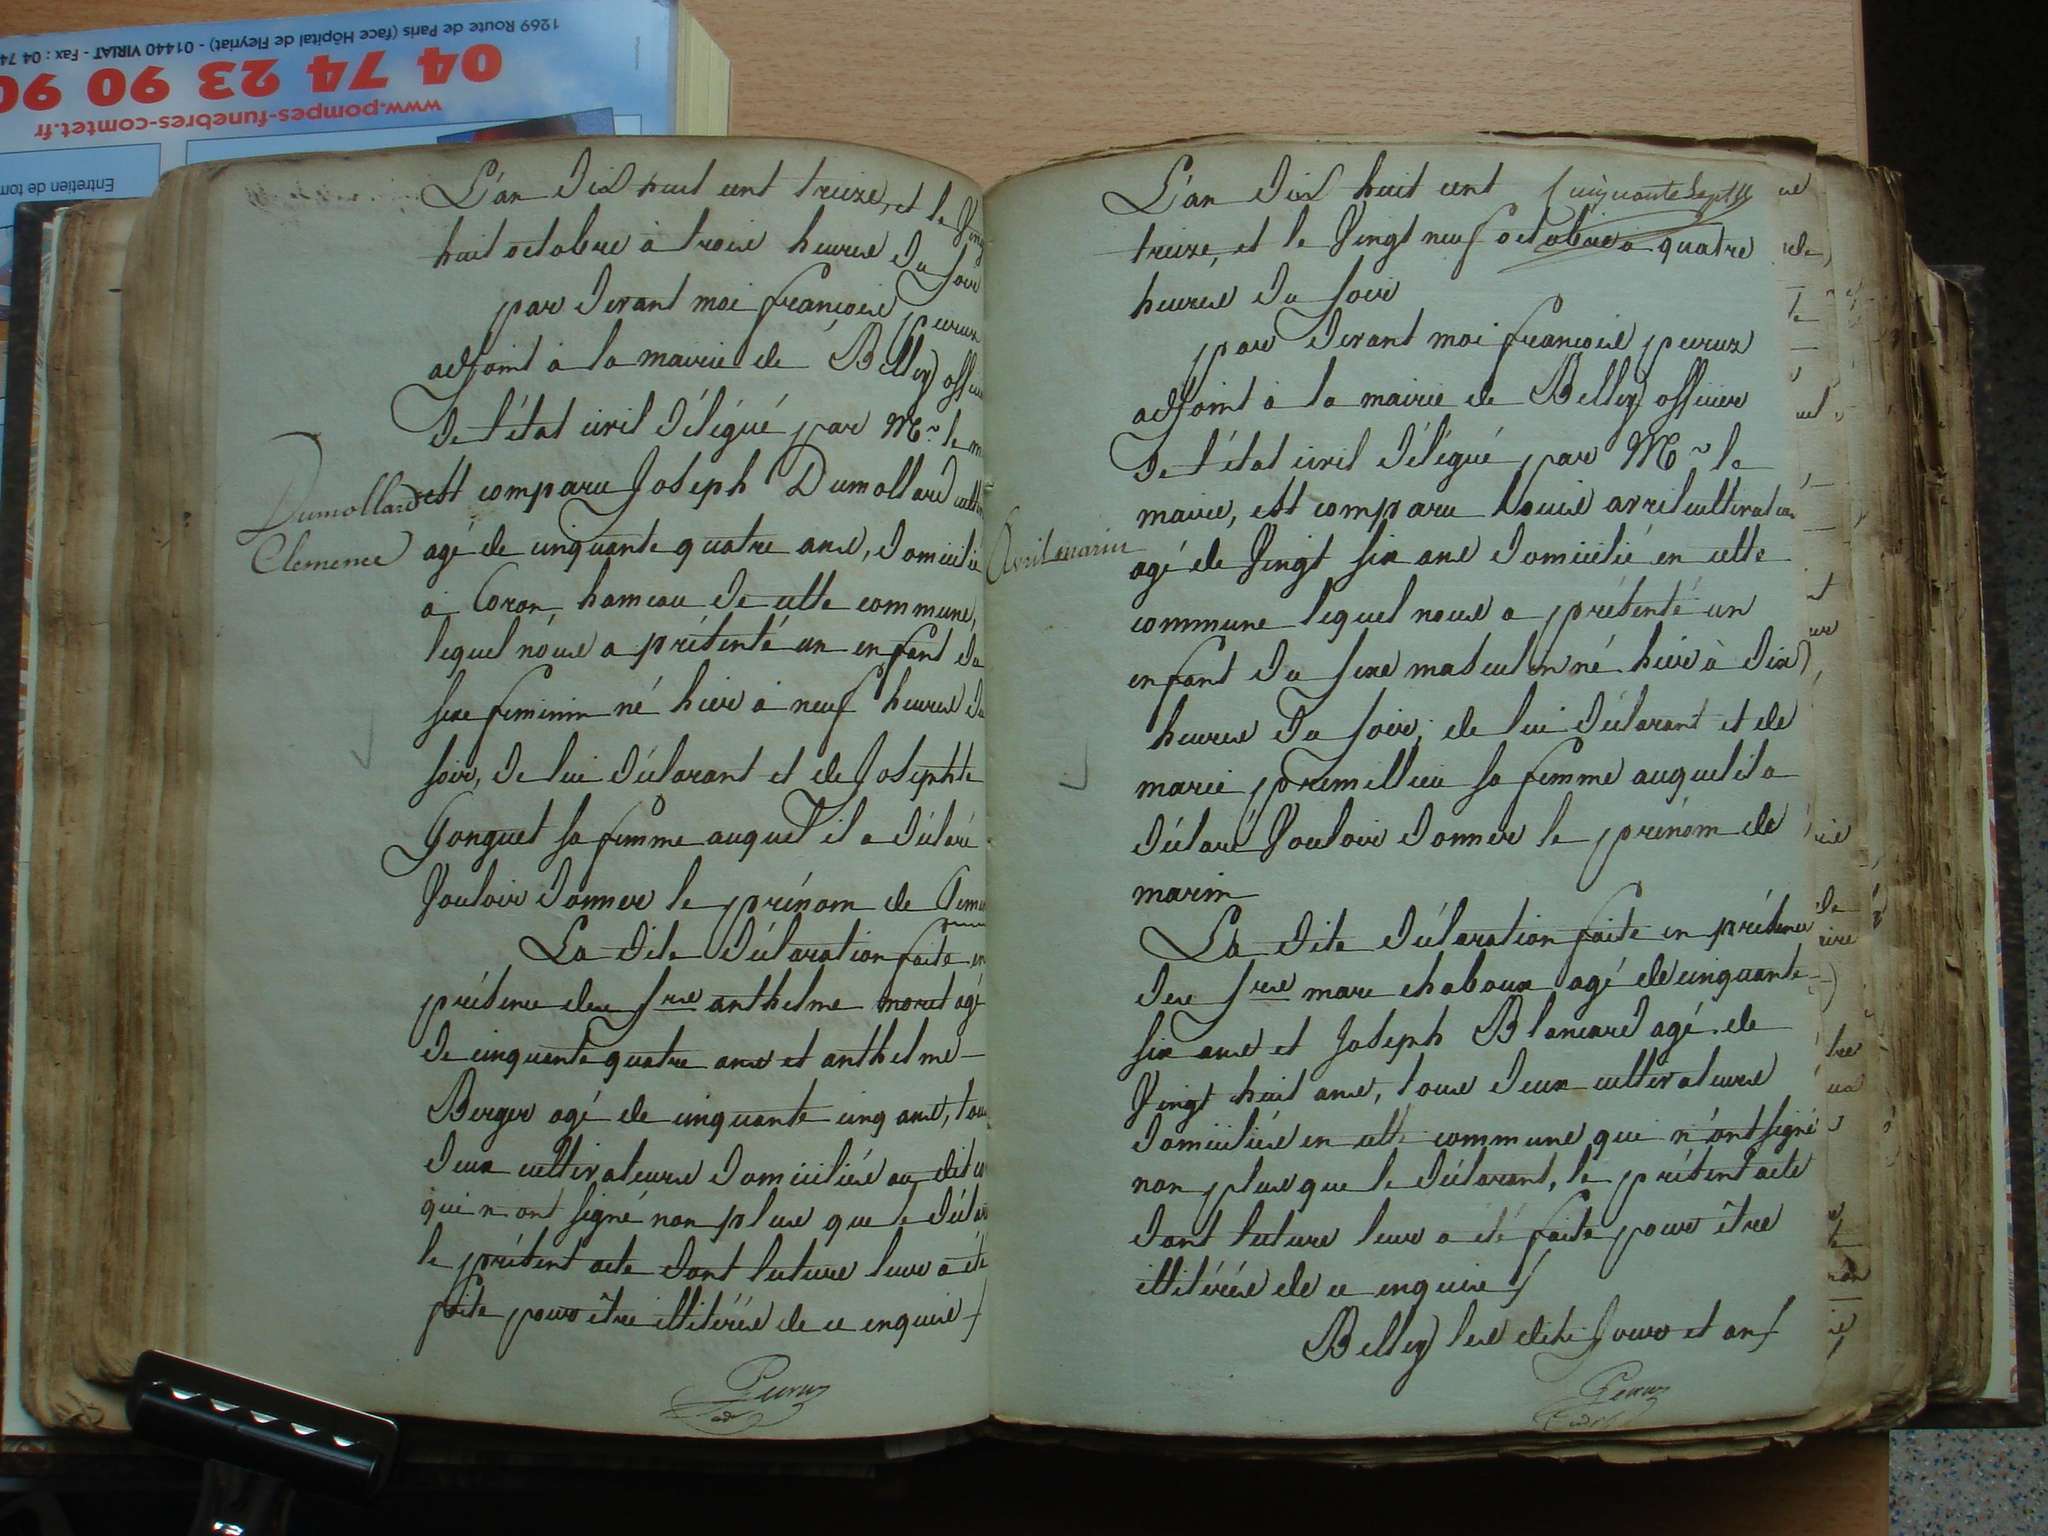 1269 Route de Paris (face Hôpital de Fleyriat) - 01440 VIRIAT - Fax : 04 74
04 74 23 90 90
www.pompes-funebres-comtet.fr
Entretien de tom
L'an dix huit cent treize, et le Ving
huit octobre à trois heures du soir
par devant moi françois peruz
adjoint à la mairie de Belley officier
de l'état civil délégué par Mr. le m
Dumollard
Clemence
est comparu Joseph Dumollard cultiv
agé de cinquante quatre ans, domicilié
à Coron, hameau de cette commune,
lequel nous a présenté un enfant du
sexe feminin né hier à neuf heures du
soir, de lui déclarant et de Josephte
Gonguet sa femme auquel il a déclaré
Vouloir donner le prénom de Clemence
La dite déclaration faite en
présence des srs anthelme moret agé
de cinquante quatre ans et anthelme
Berger agé de cinquante cinq ans, tous
deux cultivateurs domiciliés au dit co
qui n'ont signé non plus que le déclar
le présent acte dont lecture leur a été
faite pour être illitérés de ce enquis
Peruz
adj
L'an dix huit cent
cinquante sept
treize, et le Vingt neuf octobre à quatre
heures du soir
par devant moi françois peruz
adjoint à la mairie de Belley officier
de l'état civil délégué par Mr. le
Avril marin
maire, est comparu Louis avril cultivateur
agé de Vingt six ans domicilié en cette
commune lequel nous a présenté un
enfant du sexe masculin né hier à dix
heures du soir, de lui déclarant et de
marie premillieu sa femme auquel il a
déclaré Vouloir donner le prénom de
marin
La dite déclaration faite en présence
des srs marc chaboux agé de cinquante
six ans et Joseph Blancard agé de
Vingt huit ans, tous deux cultivateurs
domiciliés en cette commune qui n'ont signé
non plus que le déclarant, le présent acte
dont lecture leur a été faite pour être
illitérés de ce enquis
Belley les dits Jour et an
Peruz
adj